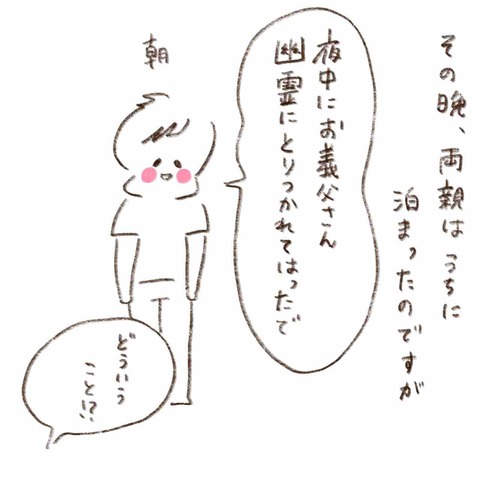 その晩、両親はうちに
泊まったのですが
朝
夜中にお義父さん
幽霊にとりつかれてはったで
どういう
こと!?